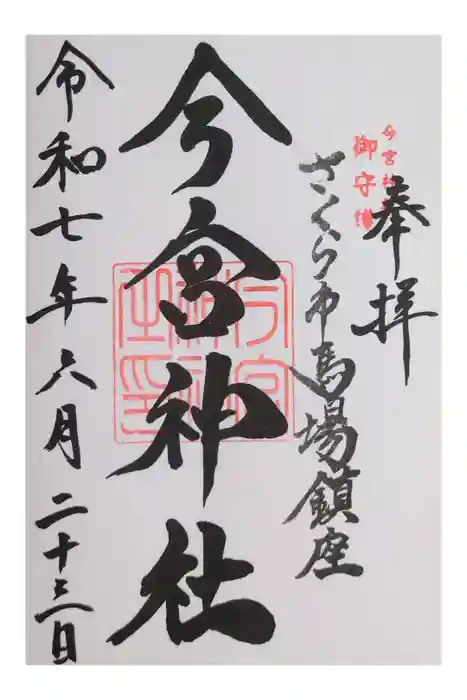 奉拝
今宮神社
御守護
さくら市馬場鎮座
今宮神社
令和七年六月二十三日